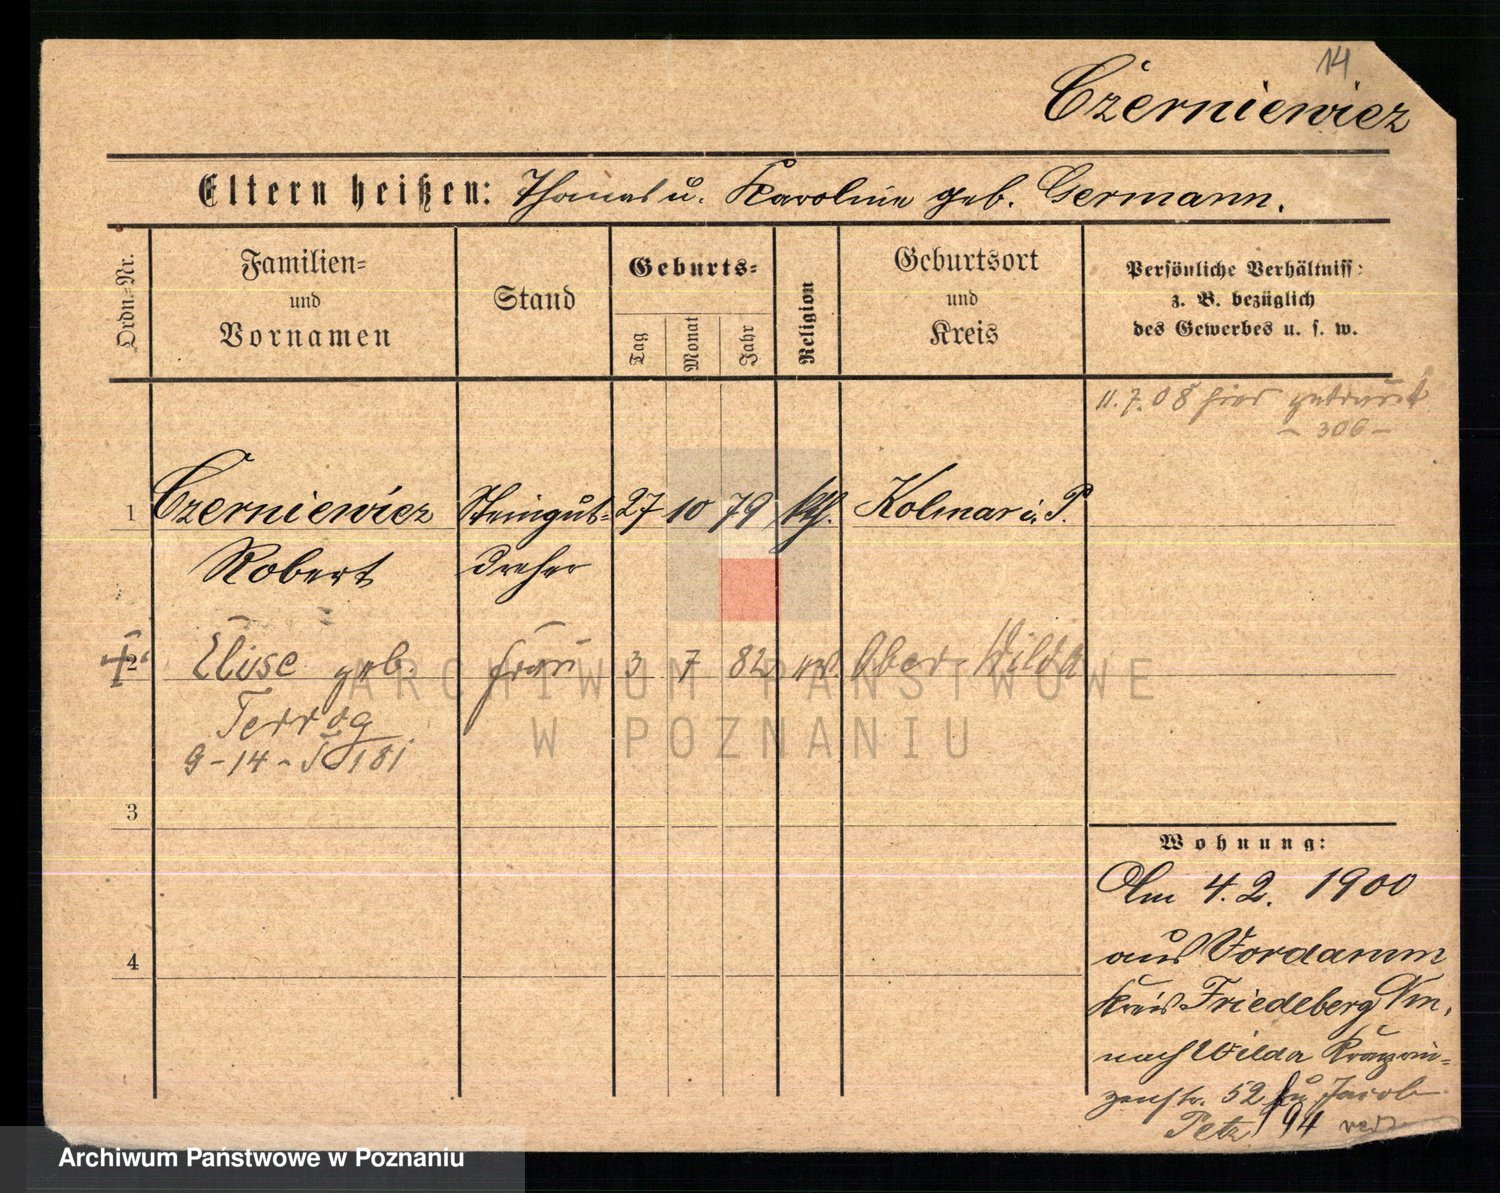 14
Czerniewicz
Eltern heißen: Thomas u. Karoline geb. Germann.
Ordn.-Nr.
Familien-
und
Vornamen
Stand
Geburts-
Tag
Monat
Jahr
Religion
Geburtsort
und
Kreis
Persönliche Verhältniss:
z. B. bezüglich
des Gewerbes u. s. w.
11. 7. 08 hier getraut
- 306 -
1 Czerniewicz Steingut- 27 10 79 kth. Kolmar i. P.
Robert dreher
2 Elise geb Frau 3 7 82 Ober Wilda
9-14-
3
4
Wohnung:
Am 4. 2. 1900
aus Vordamm
Kreis Friedeberg Nm.
nach Wilda
52 Jacob
94
ARCHIWUM PAŃSTWOWE
W POZNANIU
Archiwum Państwowe w Poznaniu